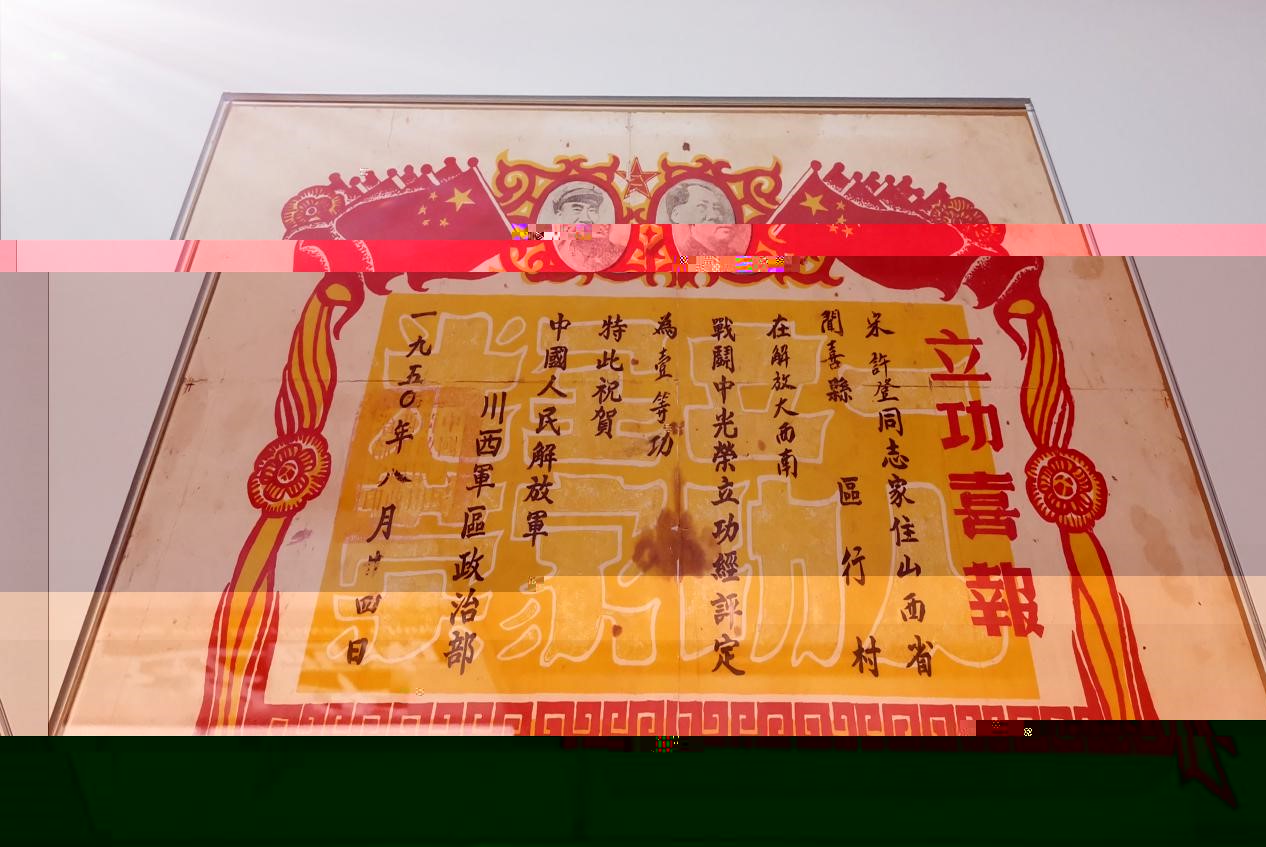 立功喜報
宋許登同志家住山西省
聞喜縣 區 行 村
在解放大西南
戰鬪中光榮立功經評定
為壹等功
特此祝賀
中國人民解放軍
川西軍區政治部
一九五〇年八月廿四日